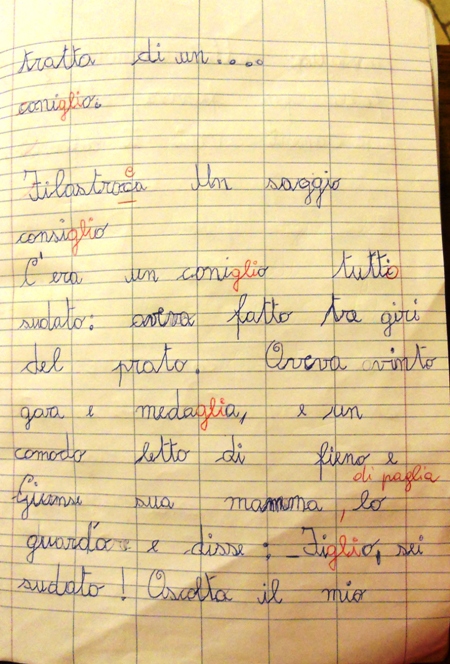 tratta di un....
coniglio.
Filastrocca Un saggio
consiglio
C'era un coniglio tutto
sudato: aveva fatto tre giri
del prato. Aveva vinto
gara e medaglia, e un
comodo letto di fieno e
di paglia
Giunse sua mamma, lo
guardò e disse: _Figlio, sei
sudato! Ascolta il mio